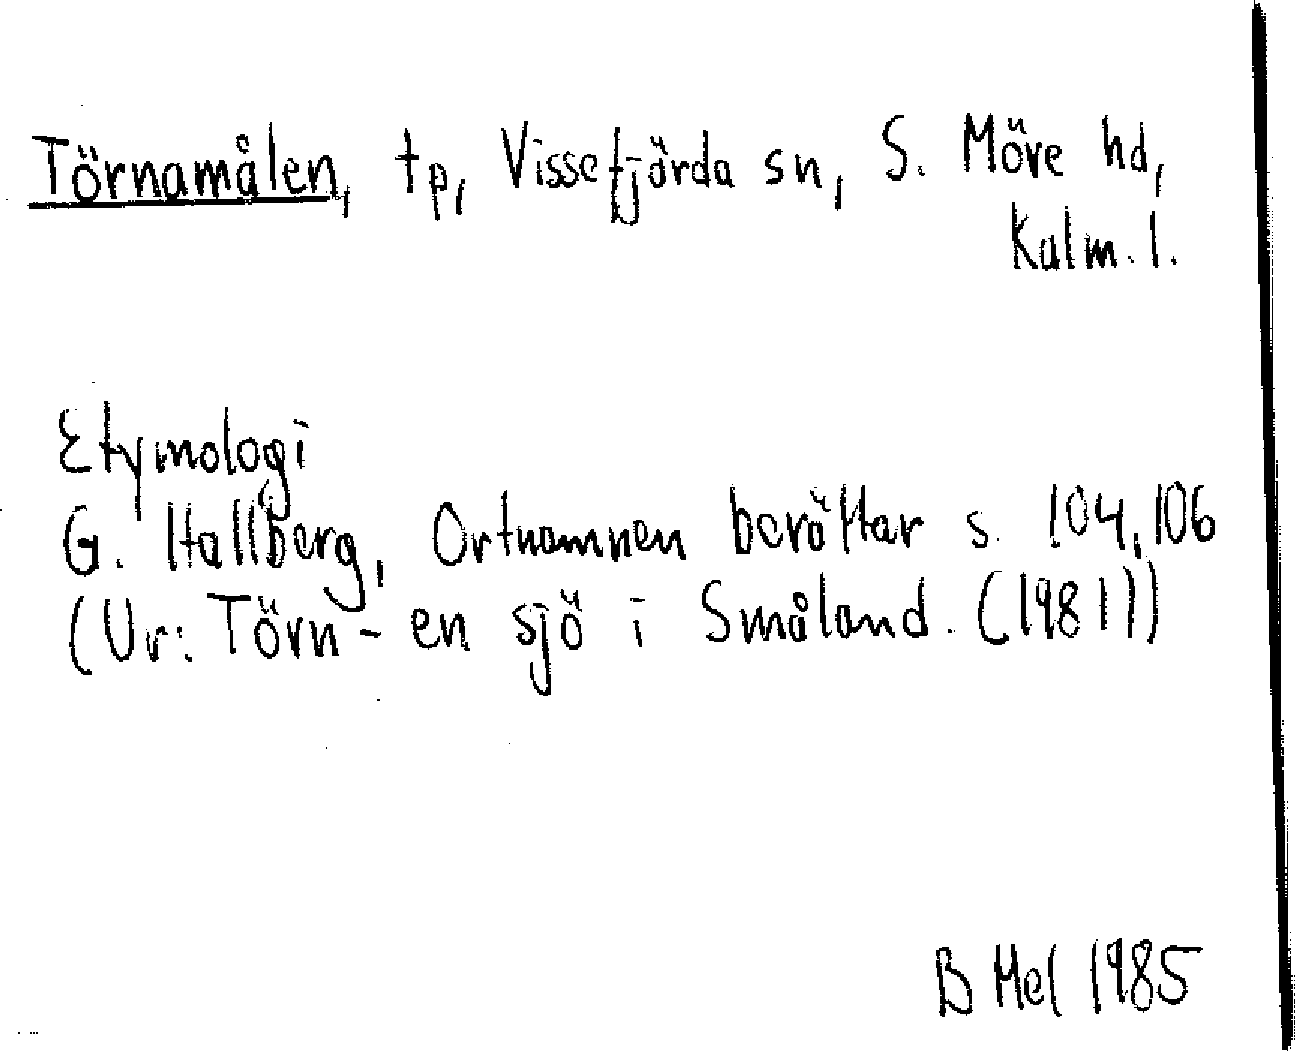 Törnamålen, tp, Vissefjärda sn, S. Möre hd,
Kalm. l.
Etymologi
G. Hallberg, Ortnamnen berättar s. 104, 106
(Ur: Törn - en sjö i Småland. (1981))
B Mel 1985